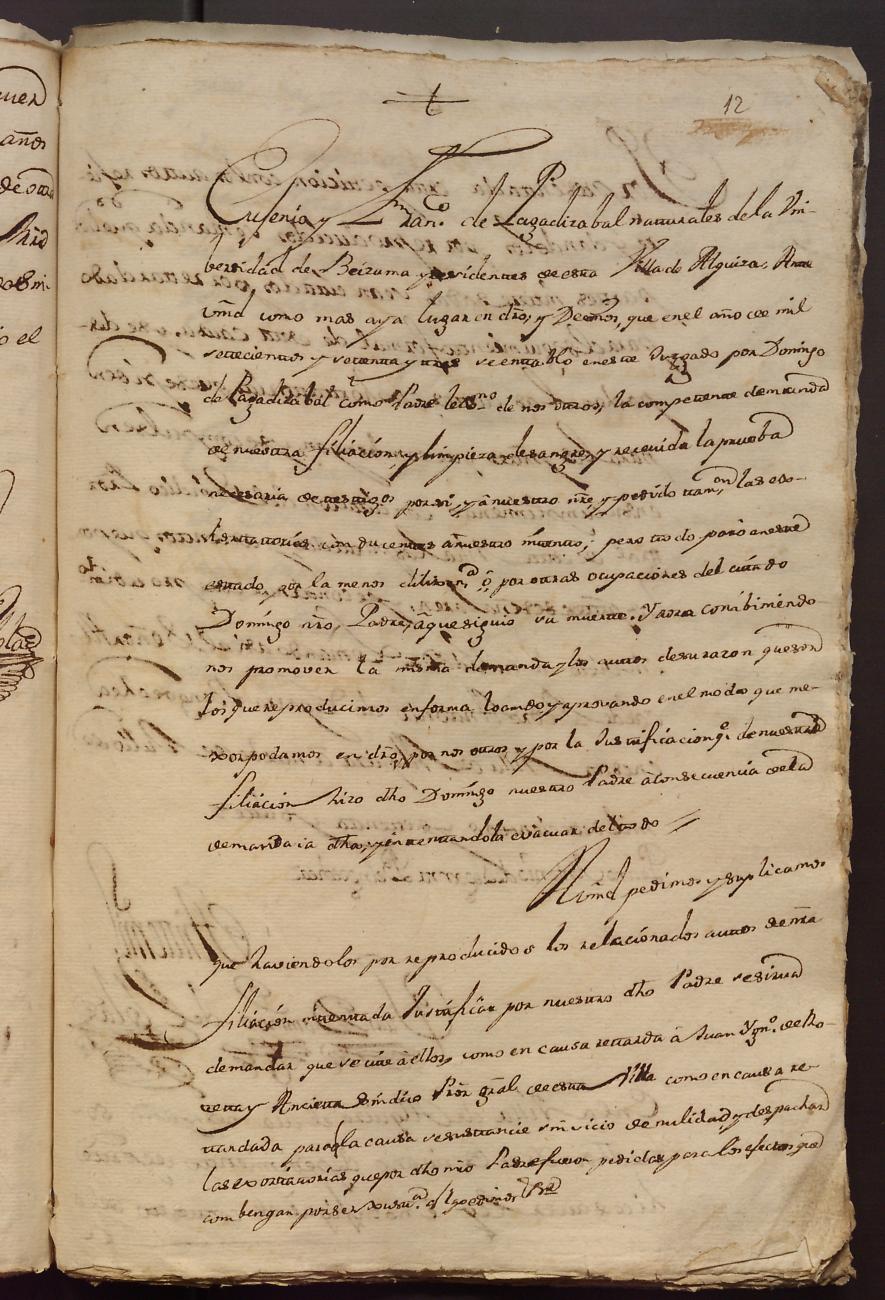 12
Eugenia y Fran.co de Lazadizabal naturales de la Vni-
bersidad de Beizama y residentes de esta Villa de Alquiza, Ante
vmd como mas aya lugar en dro, y Decimos, que en el año de mil
settecientos y settenta y tres se entabló en este Juzgado por Domingo
de Lazadizabal como Padre lex.mo de nosotros, la competente demanda
de nuestra filiacion, y limpieza de sangre, y recevida la prueba
necesaria de testigos por si, y a nuestro nre y pedido tam.on las exo-
rtatorias con ducentes a nuestro intento; pero todo paró en este
estado, por la menos dilixen.a ó por otras ocupaciones del citado
Domingo nro, Padre, a que siguio su muerte. Y aora conbiniendo
nos promover la misma demanda y los autos de su razon que son
los que reproducimos en forma loando y aprovando en el modo que me-
xor podamos en dro, por nosotros y por la Justificacion q.e de nuestra
filiacion hizo dho Domingo nuestro Padre à consecuencia de la
demanda dha, y intentandola evacuar del todo =
A vmd pedimos y suplicamos
que haviendolos por reproducidos los relacionados autos de nra
filiacion intentada Justificar por nuestro dho Padre se sirva
demandar que se cite à ellos, como en causa retarda à Juan Ygn.o de
y Ancieta Sindico Pror gral de esta Villa como en causa re-
tardada para q la causa se sustancie sin vicio de nulidad y despachar
las exortatorias que por dho nro Padre fueron pedidas para los efectos que
combengan por ser Justa.